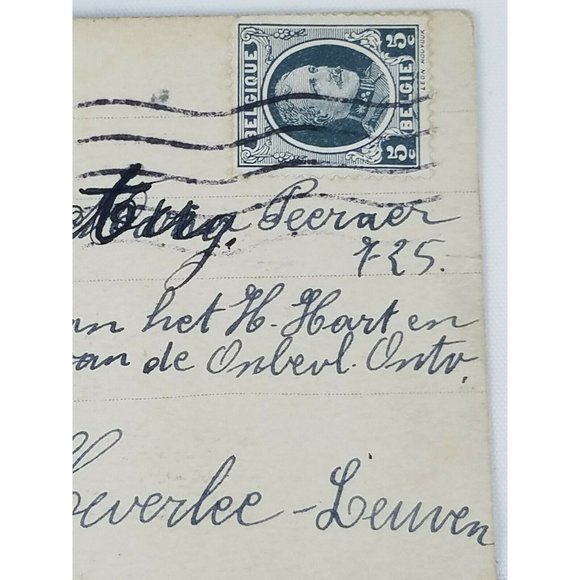 BELGIQUE 5c BELGIE 5c
LEON HOUYOUX
Peeraer
725.
an het H. Hart en
van de Onbevl. Ontv.
Heverlee - Leuven